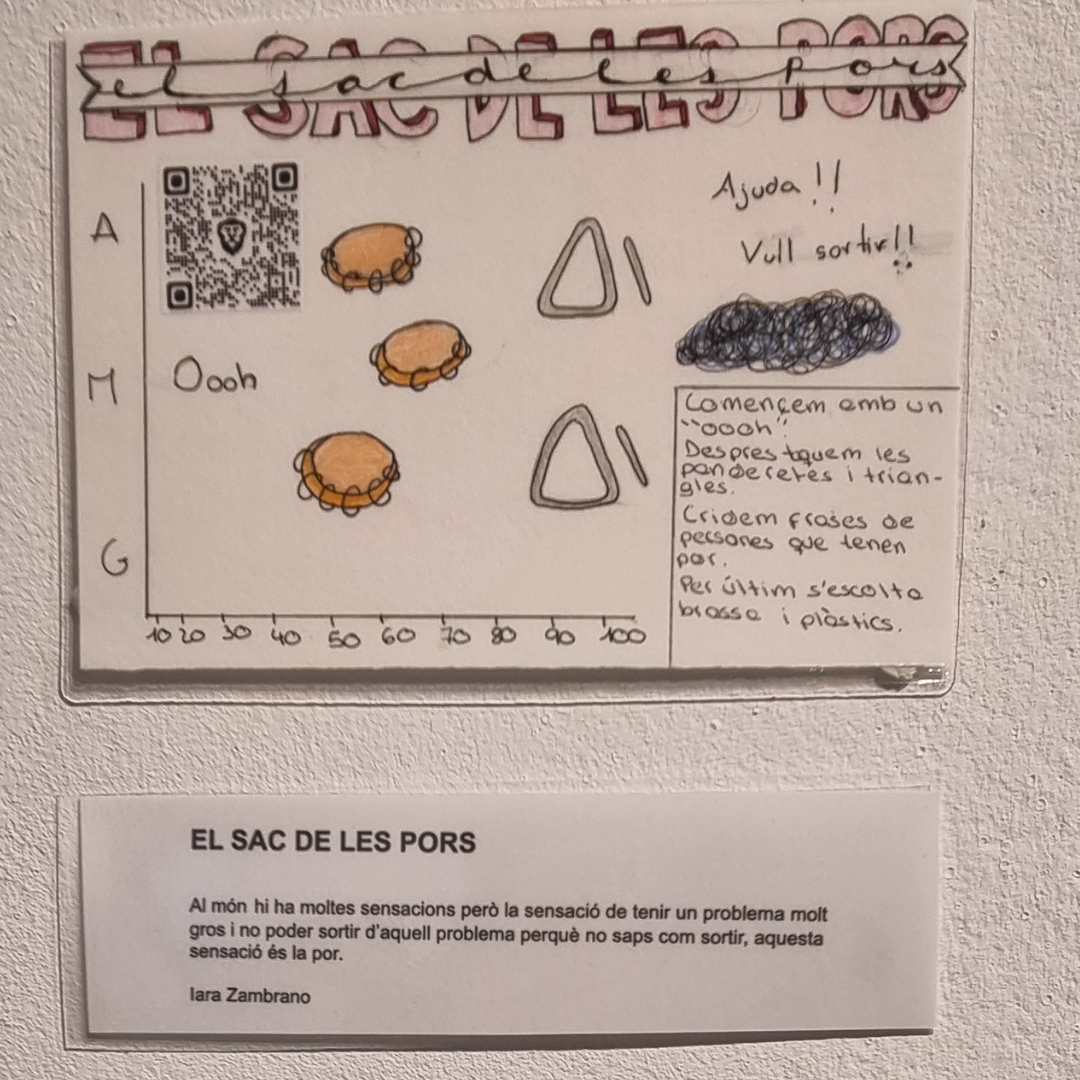 EL SAC DE LES PORS
el sac de les pors
A
M
G
Oooh
10 20 30 40 50 60 70 80 90 100
Ajuda !!
Vull sortir!!
Començem amb un
"oooh".
Despres toquem les
panderetes i trian-
gles.
Cridem frases de
persones que tenen
por.
Per últim s'escolta
brossa i plàstics.
EL SAC DE LES PORS
Al món hi ha moltes sensacions però la sensació de tenir un problema molt
gros i no poder sortir d'aquell problema perquè no saps com sortir, aquesta
sensació és la por.
Iara Zambrano